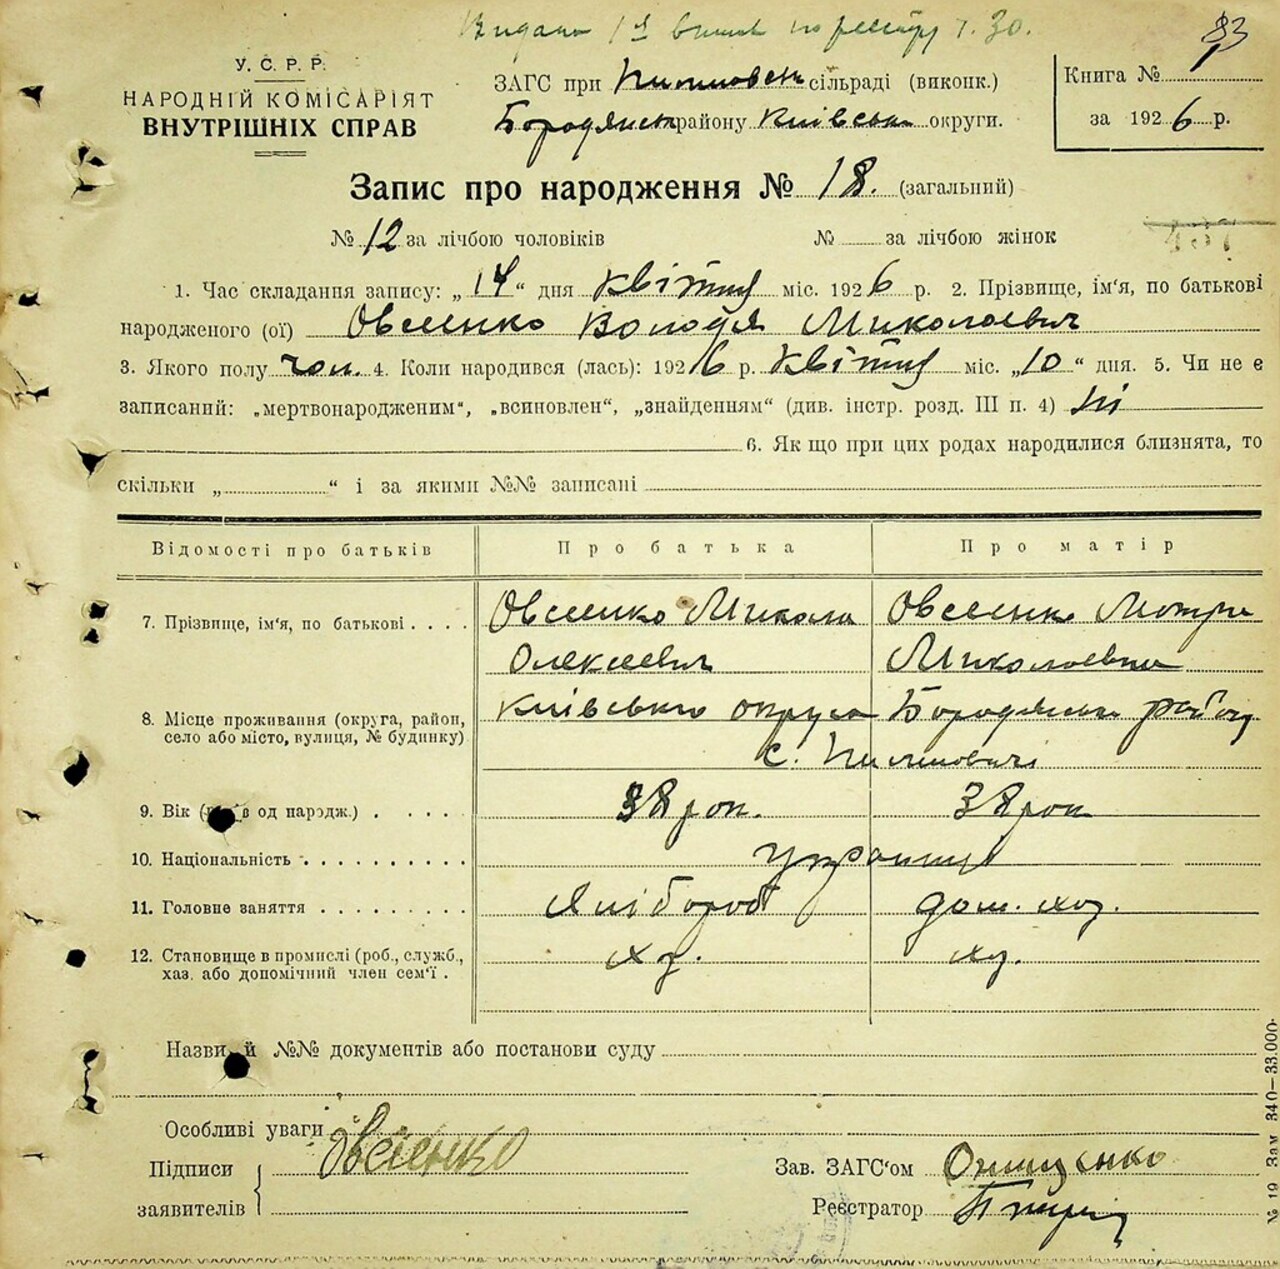 Видано 1й витяг по реєстру 7. 30.
83
У. С. Р. Р.
НАРОДНІЙ КОМІСАРІЯТ
ВНУТРІШНІХ СПРАВ
ЗАГС при сільраді (виконк.)
Бородянськ району Київськ округи.
Книга №
за 1926 р.
Запис про народження № 18. (загальний)
№ 12 за лічбою чоловіків № за лічбою жінок
1. Час складання запису: „ 14 “ дня квітня міс. 1926 р. 2. Прізвище, ім'я, по батькові
народженого (ої) Овсієнко Володя Миколаєвич
3. Якого полу чол. 4. Коли народився (лась): 1926 р. квітня міс. „ 10 “ дня. 5. Чи не є
записаний: „мертвонародженим“, „всиновлен“, „знайденням“ (див. інстр. розд. III п. 4) ні
6. Як що при цих родах народилися близнята, то
скільки „ “ і за якими №№ записані
Відомості про батьків Про батька Про матір
7. Прізвище, ім'я, по батькові . . . . Овсієнко Микола Овсієнко Мотря
Олексієвич Миколаєвна
8. Місце проживання (округа, район, село або місто, вулиця, № будинку) Київського округа Бородянськ району
с. Пилиповичі
9. Вік ( в од народж.) . . . . . 38 рок. 38 рок
10. Національність . . . . . . . . . . українці
11. Головне заняття . . . . . . . . . Хлібороб дом. хоз.
12. Становище в промислі (роб., служб., хаз. або допомічний член сем'ї . хз. хз.
Назви й №№ документів або постанови суду
Особливі уваги
Підписи Овсієнко Зав. ЗАГС'ом Онищенко
заявителів Реєстратор
№ 19 Зам. 340—33.000